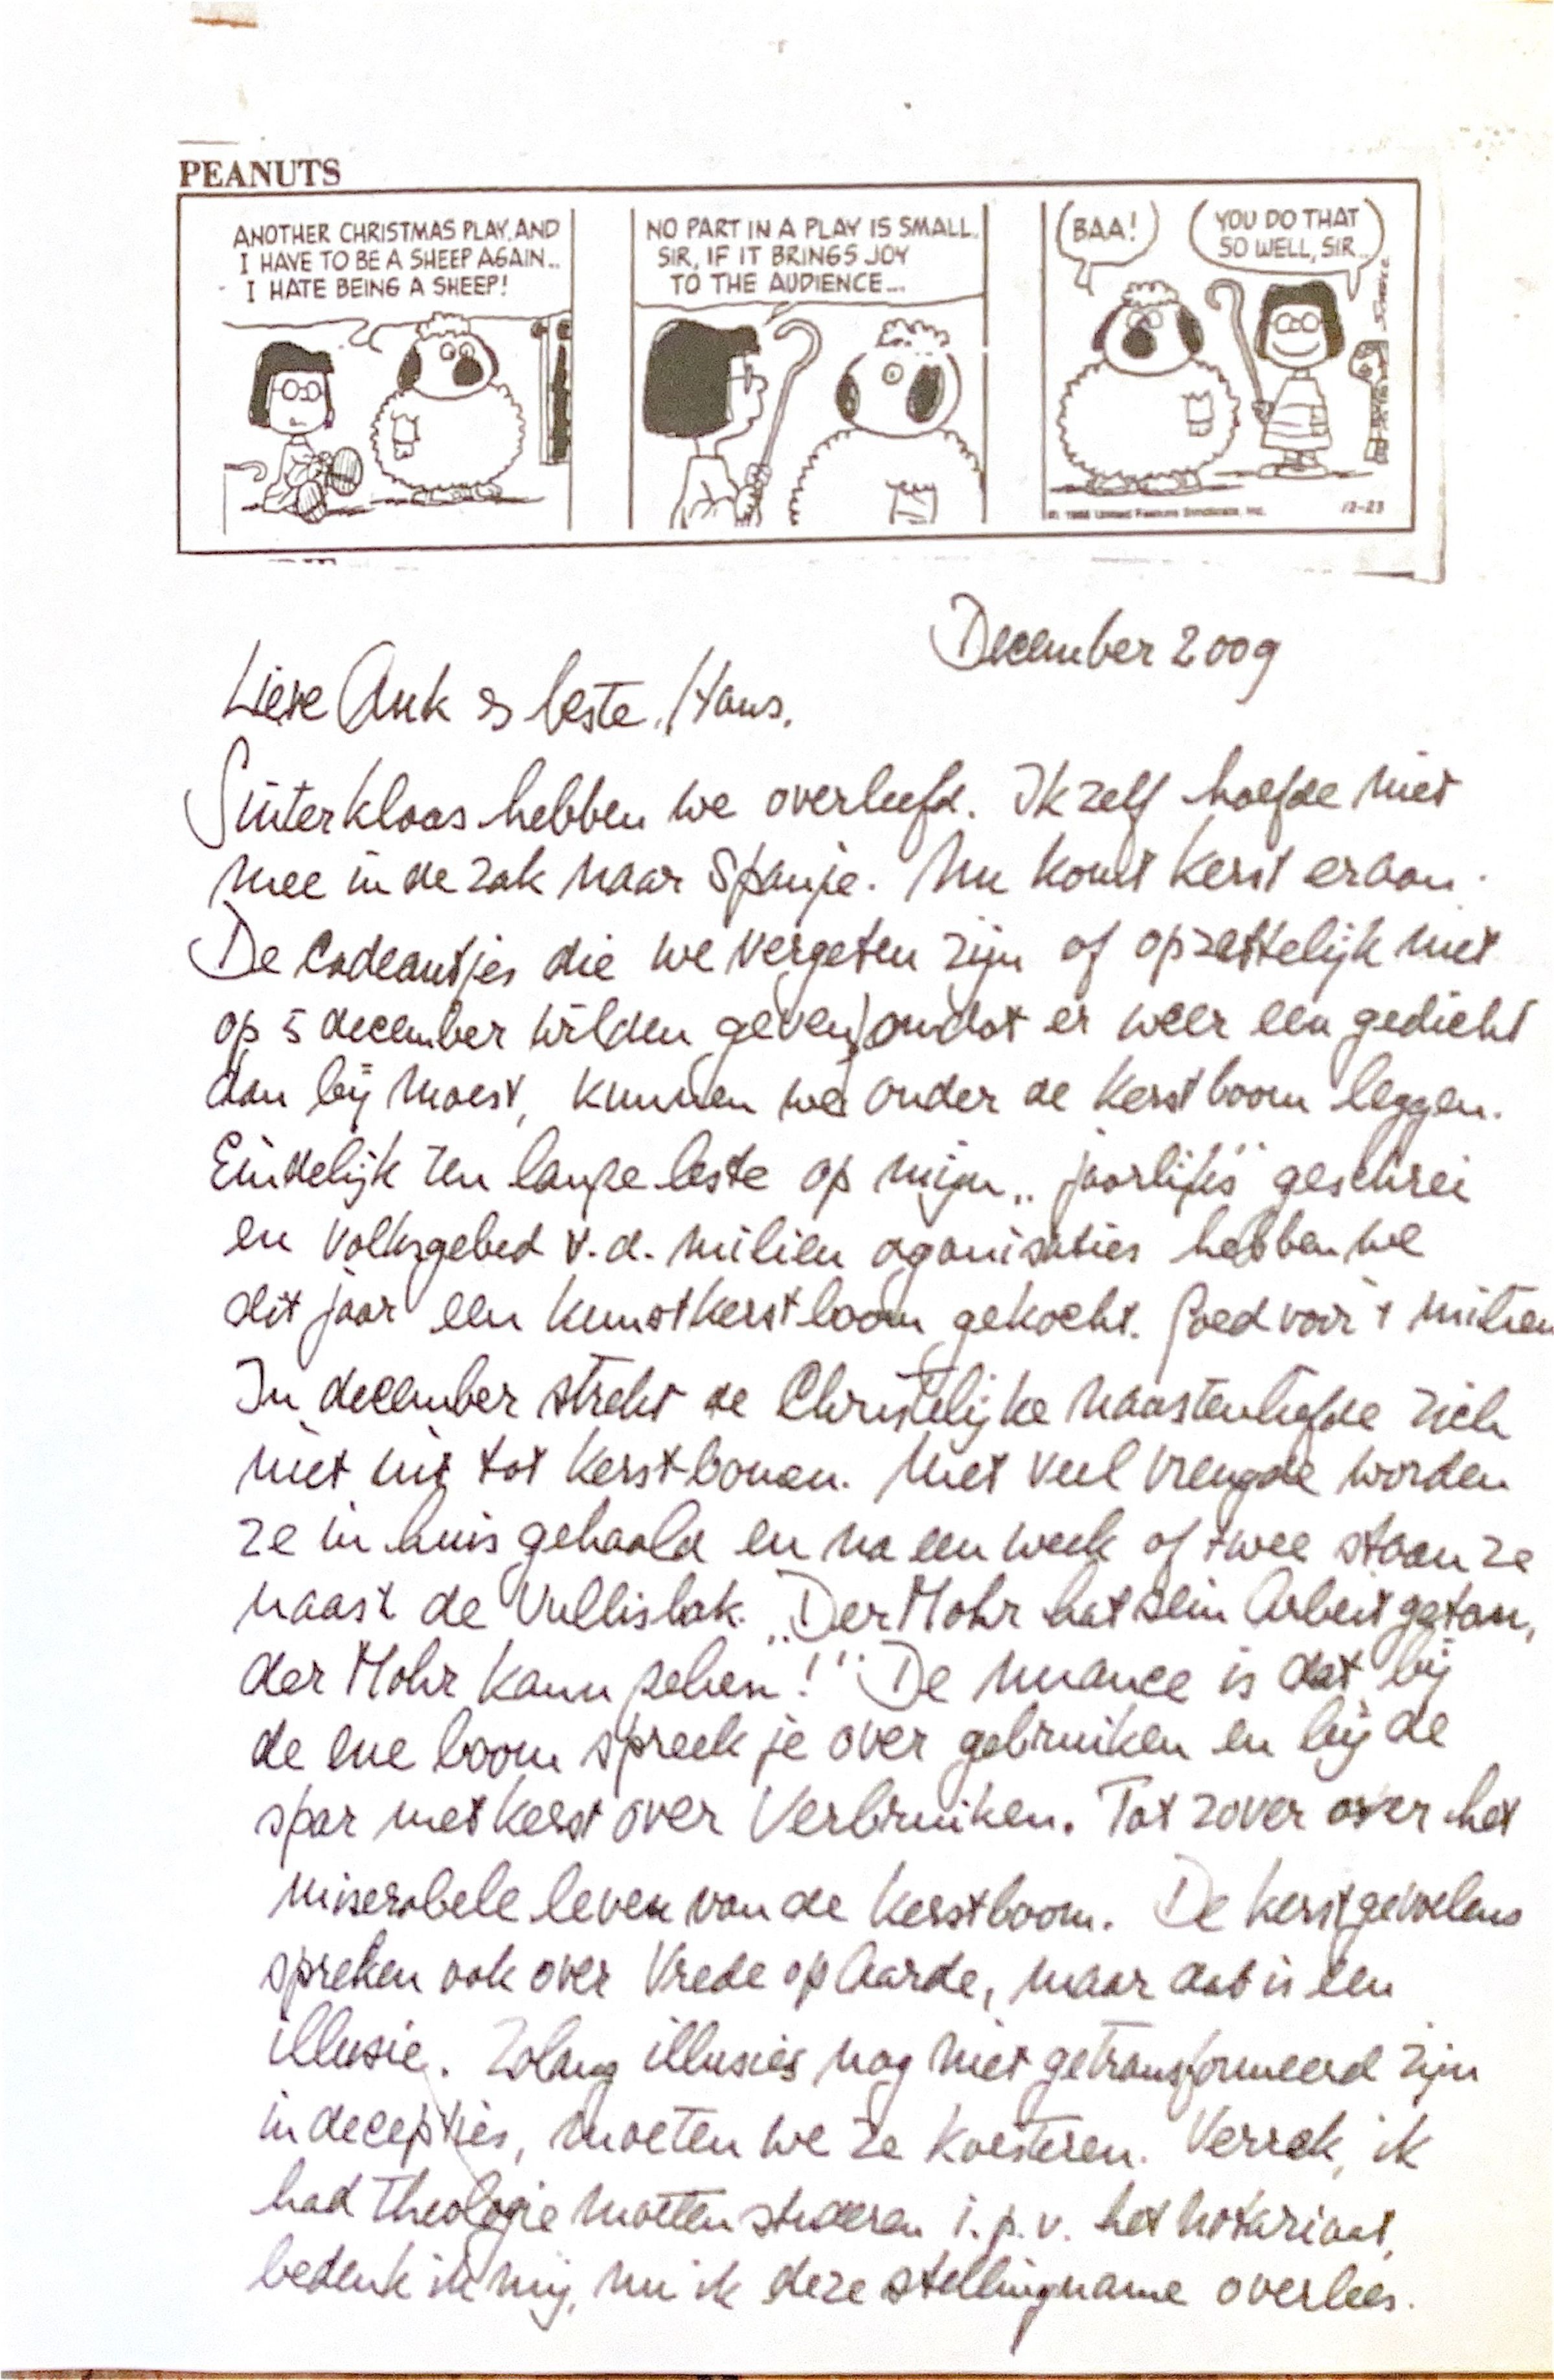 PEANUTS
ANOTHER CHRISTMAS PLAY, AND
I HAVE TO BE A SHEEP AGAIN..
I HATE BEING A SHEEP!
NO PART IN A PLAY IS SMALL,
SIR, IF IT BRINGS JOY
TO THE AUDIENCE...
BAA!
YOU DO THAT
SO WELL, SIR..
© 1988 United Feature Syndicate, Inc.
12-23
December 2009
Lieve Ank es beste Hans,
Sinterklaas hebben we overleefd. Ik zelf hoefde niet
mee in de zak naar Spanje. Nu komt Kerst eraan.
De Cadeautjes die we vergeten zijn of opzettelijk niet
op 5 december wilden geven, omdat er weer een gedicht
dan bij moest, kunnen we onder de kerstboom leggen.
Eindelijk ten lange leste op mijn „jaarlijks" geschrei
en volksgebed v.d. milieu oganisaties hebben we
dit jaar een kunstkerstboom gekocht. Goed voor 't milieu
In december strekt de Christelijke naastenliefde zich
niet uit tot kerstbomen. Met veel vreugde worden
ze in huis gehaald en na een week of twee staan ze
naast de Vullisbak. „Der Mohr hat sein Arbeit getan,
der Mohr kann gehen!" De nuance is dat bij
de ene boom spreek je over gebruiken en bij de
spar met kerst over Verbruiken. Tot zover over het
miserabele leven van de Kerstboom. De kerstgevoelens
spreken ook over Vrede op Aarde, maar dat is een
illusie. Zolang illusies nog niet getransformeerd zijn
in decepties, moeten we ze koesteren. Verrek, ik
had Theologie moeten studeren i.p.v. het notariaat,
bedenk ik mij, nu ik deze stellingname overlees.